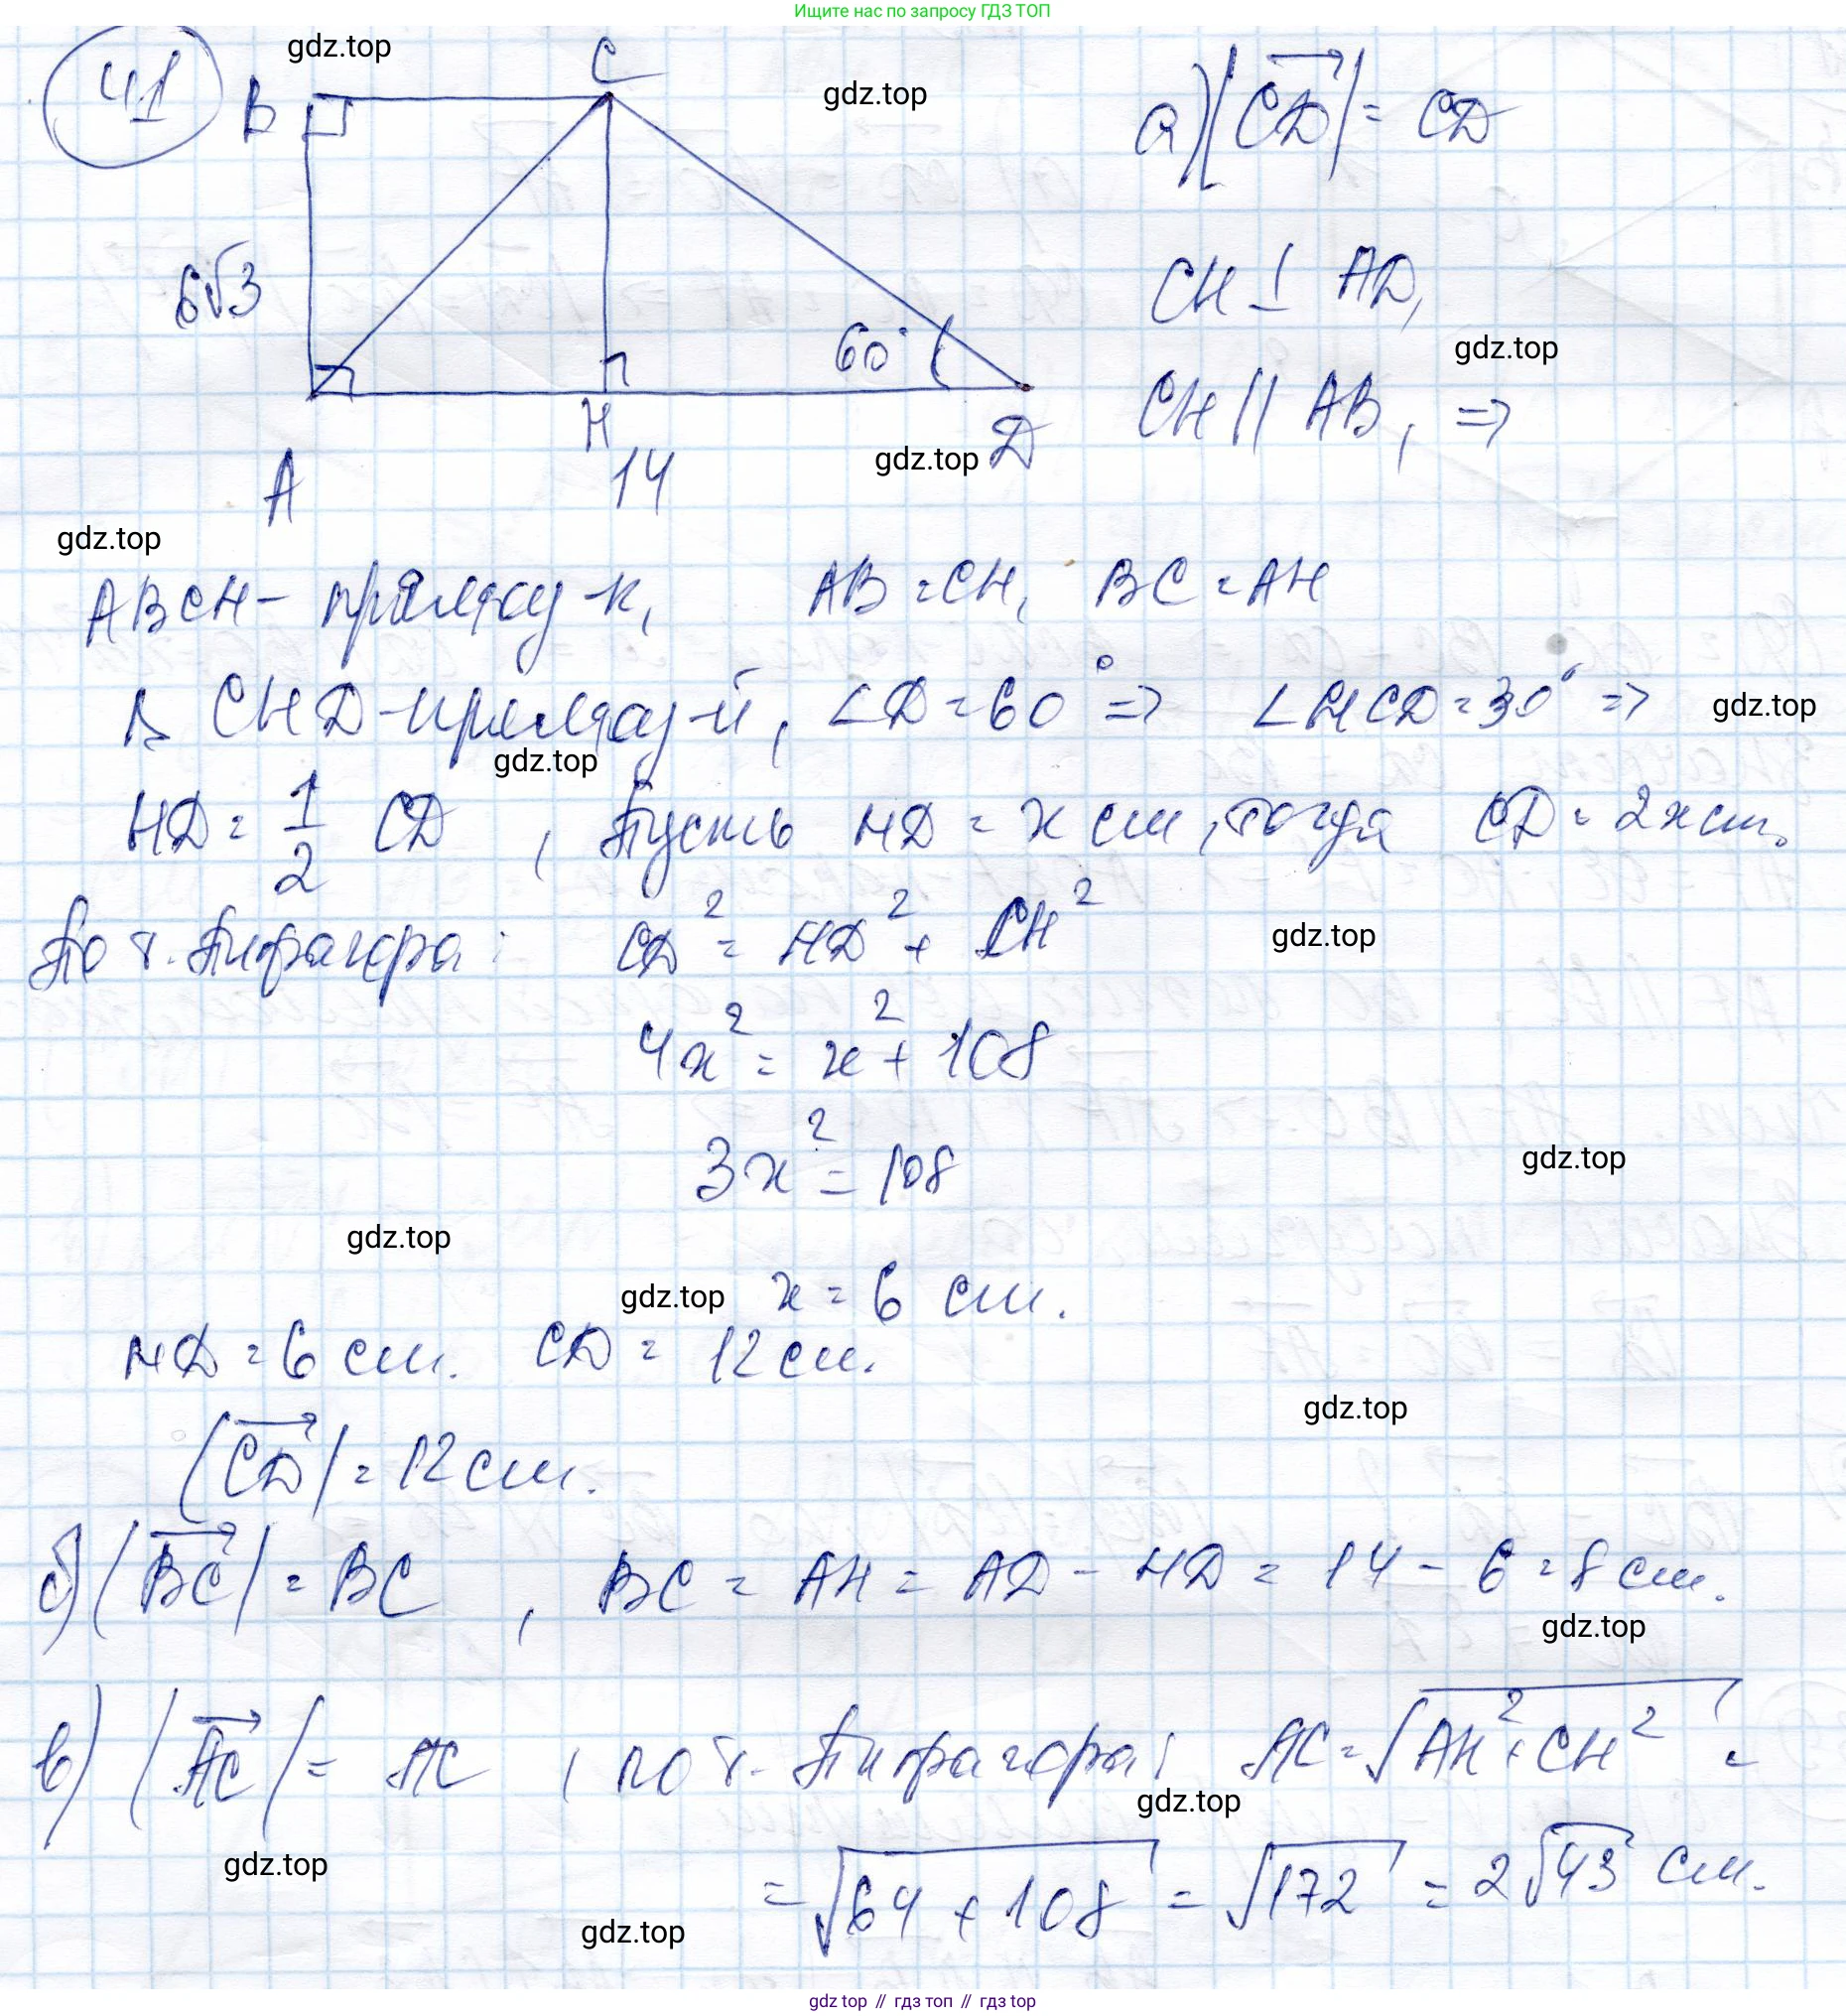 Ищите нас по запросу ГДЗ ТОП
41
gdz.top
B
C
gdz.top
а) |CD| = CD
6√3
60°
CH ⊥ AD,
gdz.top
CH || AB, =>
A
H
14
gdz.top
D
gdz.top
ABCH - прямоу-к, AB = CH, BC = AH
В CHD - прямоу-й, ∠D = 60° => ∠HCD = 30° =>
gdz.top
gdz.top
HD = 1/2 CD, Пусть HD = x см, тогда CD = 2x см.
По т. Пифагора: CD² = HD² + CH²
gdz.top
4x² = x² + 108
3x² = 108
gdz.top
gdz.top
gdz.top
x = 6 см.
HD = 6 см. CD = 12 см.
gdz.top
|CD| = 12 см.
б) |BC| = BC, BC = AH = AD - HD = 14 - 6 = 8 см.
gdz.top
в) |AC| = AC, по т. Пифагора: AC = √AH² + CH² =
gdz.top
gdz.top
= √64 + 108 = √172 = 2√43 см.
gdz.top
gdz top // гдз топ // gdz top